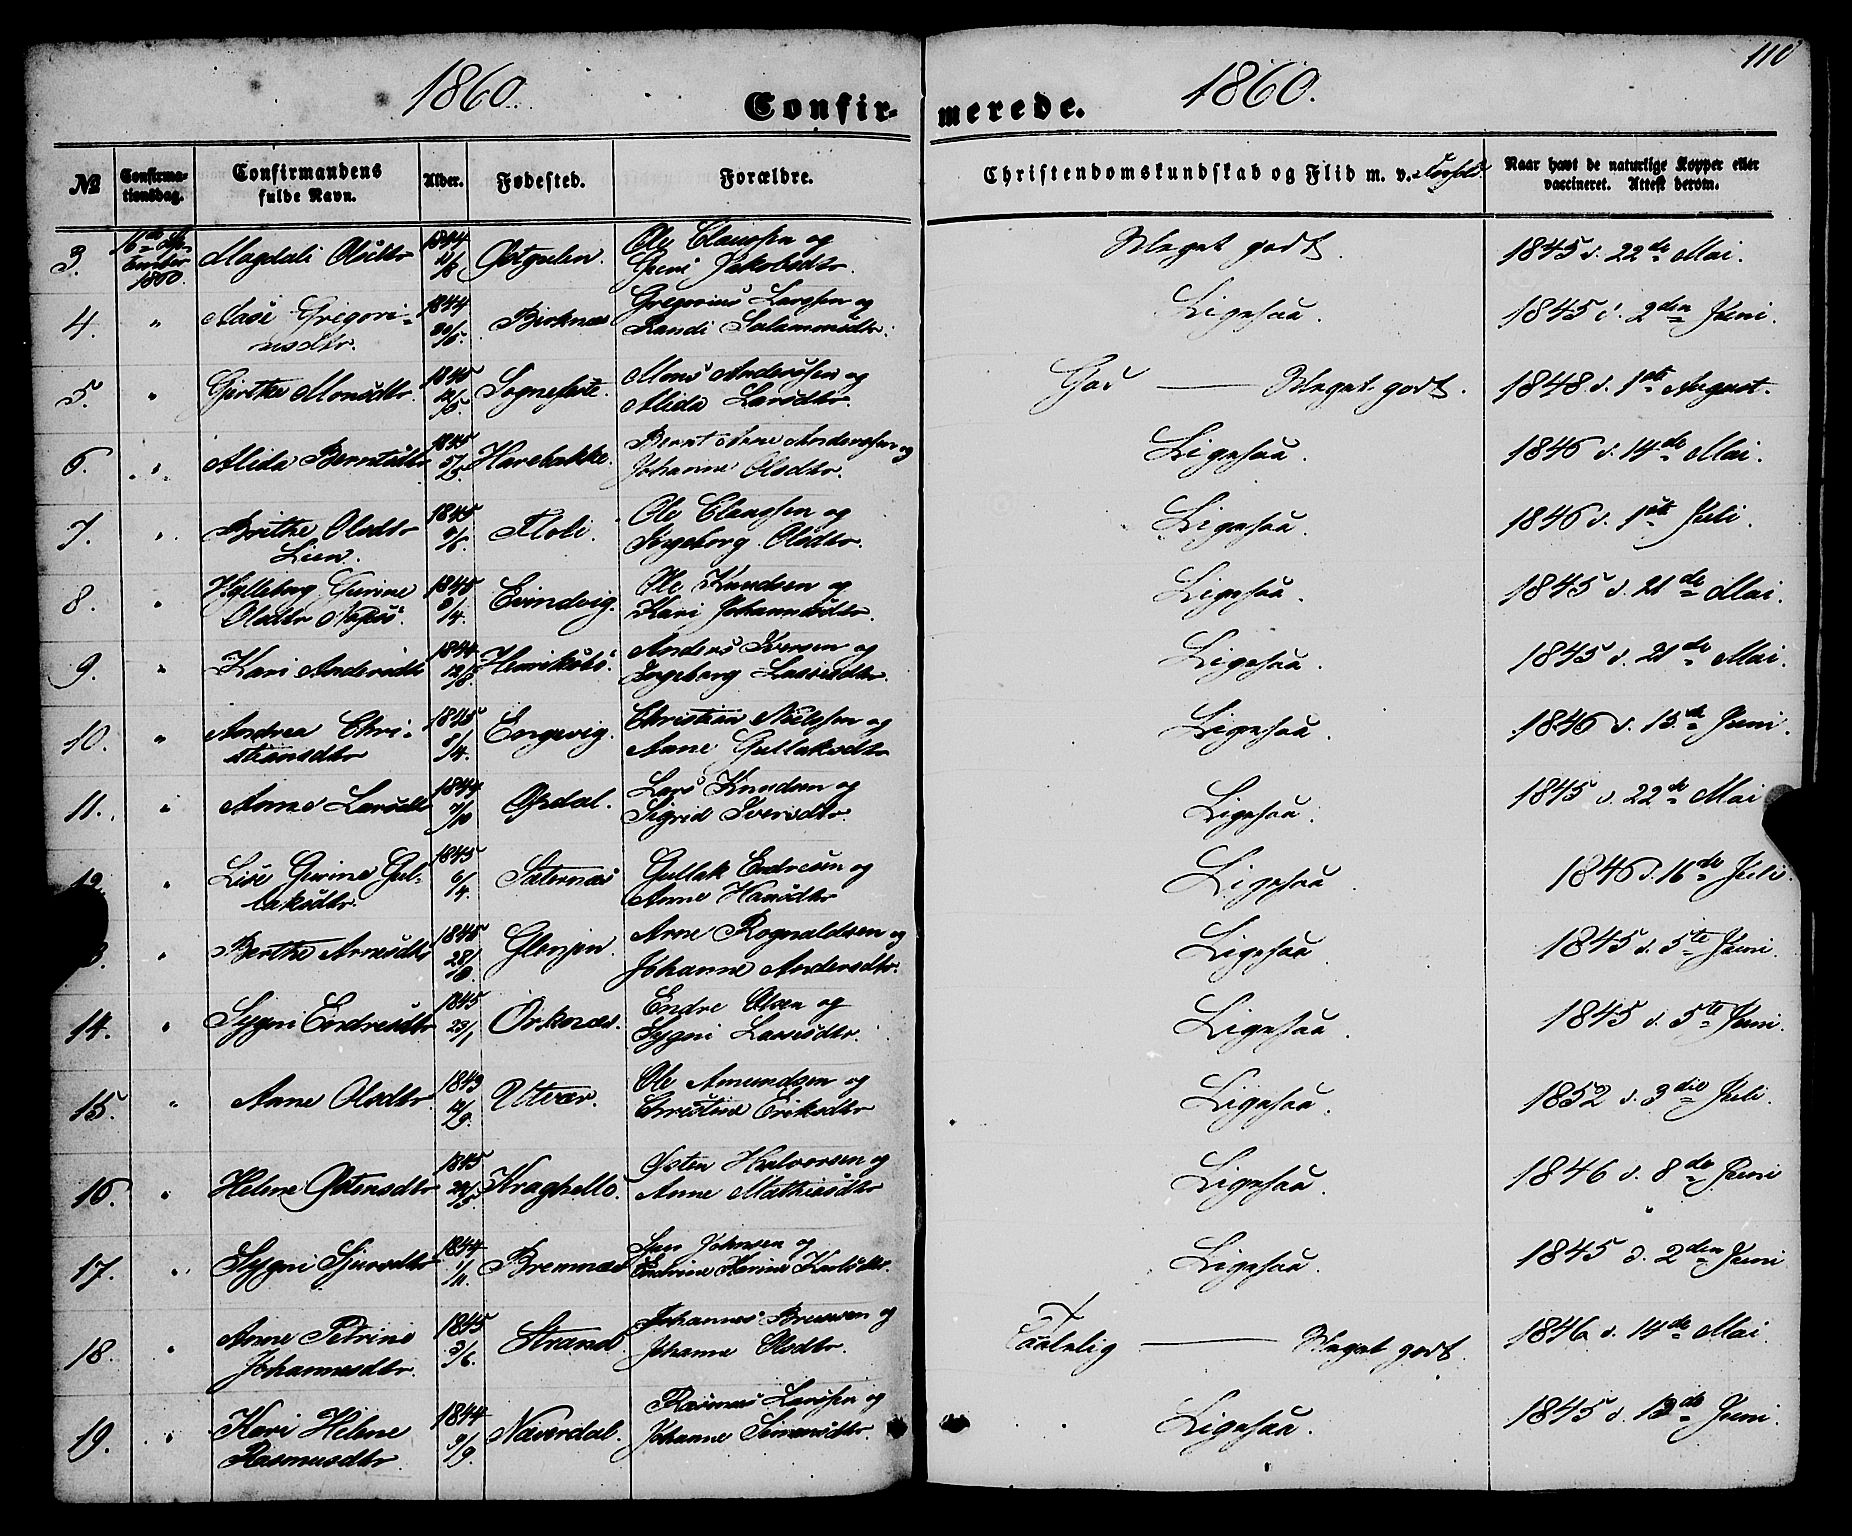 110
1860. Confirmerede. 1860.
№ Confirmationsdag. Confirmandens fulde Navn. Alder. Fødested. Forældre. Christendomskundskab og Flid m. v. Naar havt de naturlige Kopper eller vaccineret. Attest derom.
3. 16de September 1860. Magdali Olsdtr 1844 Østgulen. Ole Claussen og Guri Jakobsdtr. Meget godt. 1845 d. 22de Mai.
4. " Aase Gregoriusdtr. 1844 Birknæs Gregorius Larssen og Randi Salamonsdtr. Ligesaa. 1845 d. 2den Juni.
5. " Gjertke Monsdtr. 1845 Sognefæste. Mons Anderssen og Alida Larsdtr. God — Meget godt. 1848 d. 1ste August.
6. " Alida Berntsdtr 1845 Harebakke. Bernt Arne Anderssen og Johanne Olsdtr. Ligesaa. 1846 d. 14de Mai.
7. " Brithe Olsdtr Lien. 1845 Floli. Ole Claussen og Ingeborg Olsdtr. Ligesaa. 1846 d. 1ste Juli.
8. " Hylleborg Gurine Olsdtr 1845 8/4. Evindvig. Ole Knudsen og Kari Johannesdtr. Ligesaa. 1845 d. 21de Mai.
9. " Kari Andersdtr 1844 Henriksbø. Anders Iversen og Ingeborg Lassesdtr. Ligesaa. 1845 d. 21de Mai.
10. " Andrea Christiansdtr 1845 8/4. Engevig. Christian Nielssen og Anne Gullaksdtr Ligesaa. 1846 d. 15de Juni.
11. " Anne Larsdtr 1844 7/10 Opdal. Lars Knudsen og Sigrid Iversdtr. Ligesaa. 1845 d. 22de Mai
12. " Lise Gurine Gullaksdtr. 1845 6/4. Sæternæs Gullak Endresen og Anne Hansdtr Ligesaa. 1846 d. 16de Juli.
" Berthe Arnesdtr 1845 Glenjen. Arne Rognaldsen og Johanne Andersdtr. Ligesaa. 1845 d. 5te Juni.
14. " Sygni Endresdtr 1845 23/1 Orknæs. Endre Olsen og Sygni Lassesdtr. Ligesaa. 1845 d. 5te Juni.
15. " Anne Olsdtr. 1843 12/9. Utvær. Ole Amundsen og Christine Eriksdtr Ligesaa. 1852 d. 3die Juli.
16. " Helene Østensdtr 1845 Kraghello. Østen Halvorsen og Anne Mathiesdtr Ligesaa. 1846 d. 8de Juni
17. " Sygni Sjursdtr 1844 1/11. Bremnæs Sjur Johnsen og Endrine Karine Karlsdtr. Ligesaa. 1845 d. 2den Juni
18. " Anne Petrine Johannesdtr. 1845 3/6. Strand. Johannes og Johanne Olsdtr. Taalelig — Meget godt. 1846 d. 14de Mai.
19. " Kari Helene Rasmusdtr 1844 9/9. Næverdal. Rasmus Larssen og Johanne Simonsdtr. Ligesaa. 1845 d. 13de Juni.